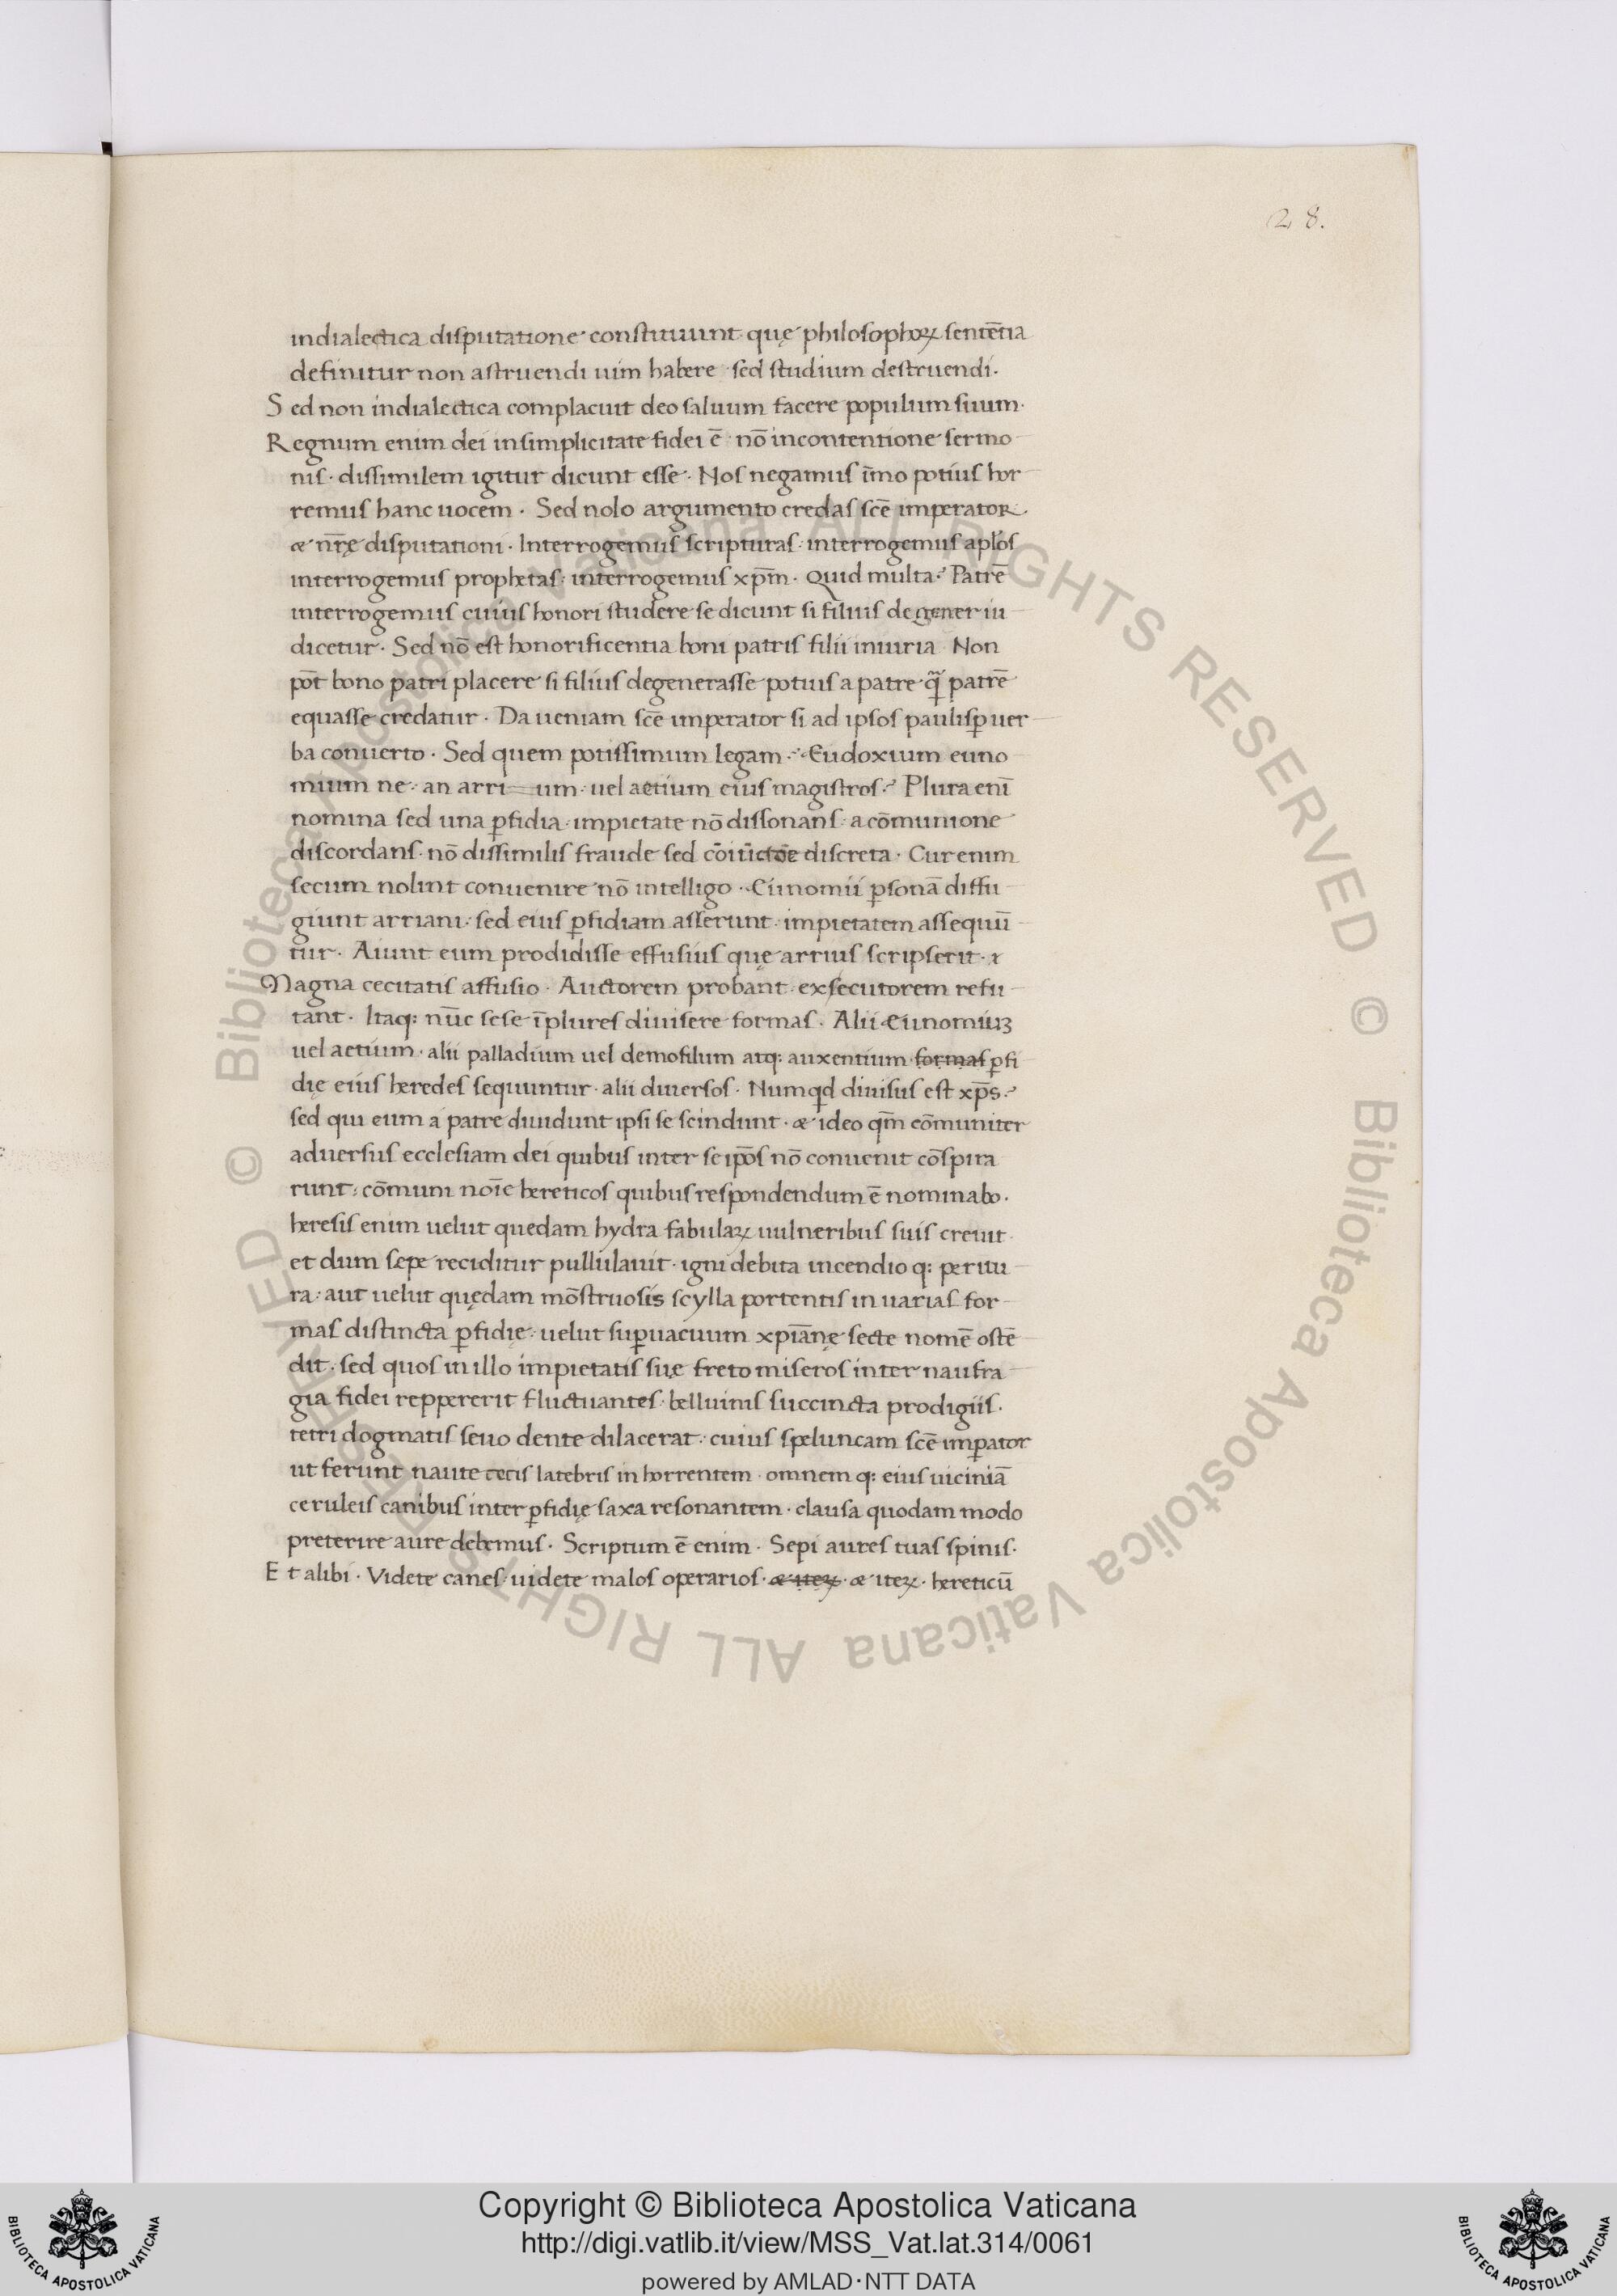 28.
indialectica disputatione constituunt· quę philosophoꝝ sentētia
definitur non astruendi uim habere · sed studium destruendi.
Sed non indialectica complacuit deo saluum facere populum suum·
Regnum enim dei insimplicitate fidei ē · nō incontentione sermo
nis· dissimilem igitur dicunt esse· Nos negamus īmo potius hor
remus hanc uocem· Sed nolo argumento credas scē imperator·
& nrę̄ disputationi· Interrogemus scripturas: interrogemus aplos
interrogemus prophetas: interrogemus xp̄m· Quid multa? Patrē
interrogemus cuius honori studere se dicunt si filius degener iu
dicetur· Sed nō est honorificentia boni patris filii iniuria Non
pōt bono patri placere si filius degenerasse potius a patre q̄ patrē
equasse credatur· Da ueniam scē imperator si ad ipsos paulisꝑ uer
ba conuerto· Sed quem potissimum legam? Eudoxium euno
mium ne: an arrium· uel aetium eius magistros? Plura enī
nomina sed una ꝑfidia· impietate nō dissonans: a cōmunione
discordans· nō dissimilis fraude sed discreta· Cur enim
secum nolint conuenire nō intelligo· Eunomii ꝑsonā diffu
giunt arriani: sed eius ꝑfidiam asserunt· impietatem assequū
tur· Aiunt eum prodidisse effusius quę arrius scripserit·
Magna cecitatis affusio· Auctorem probant· exsecutorem refu
tant· Itaq: nūc sese ī plures diuisere formas· Alii Eunomiuꝫ
uel aetium· alii palladium uel demofilum atq: auxentium formas ꝑfi
dię eius heredes sequuntur· alii diuersos· Numqd diuisus est xp̄s?
sed qui eum a patre diuidunt ipsi se scindunt· & ideo qm̄ cōmuniter
aduersus ecclesiam dei quibus inter se ipōs nō conuenit cōspira
runt: cōmuni noīe hereticos quibus respondendum ē nominabo·
heresis enim uelut quedam hydra fabulaꝝ uulneribus suis creuit·
et dum sepe reciditur pullulauit· igni debita incendio q: peritu
ra: aut uelut quędam mōstruosis scylla portentis in uarias for
mas distincta ꝑfidię: uelut suꝑuacuum xpīanę secte nomē ostē
dit· sed quos in illo impietatis suę freto miseros inter naufra
gia fidei reppererit fluctuantes· belluinis succincta prodigiis·
tetri dogmatis seuo dente dilacerat: cuius speluncam scē imꝑator
ut ferunt naute cecis latebris inhorrentem · omnem q: eius uiciniā
ceruleis canibus inter ꝑfidię saxa resonantem· clausa quodam modo
preterire aure debemus· Scriptum ē enim· Sepi aures tuas spinis·
Et alibi· Videte canes· uidete malos operarios· & iteꝝ· & iteꝝ· hereticū
© Biblioteca Apostolica Vaticana ALL RIGHTS RESERVED © Biblioteca Apostolica Vaticana ALL RIGHTS RESERVED
Copyright © Biblioteca Apostolica Vaticana
http://digi.vatlib.it/view/MSS_Vat.lat.314/0061
powered by AMLAD·NTT DATA
BIBLIOTECA APOSTOLICA VATICANA
BIBLIOTECA APOSTOLICA VATICANA